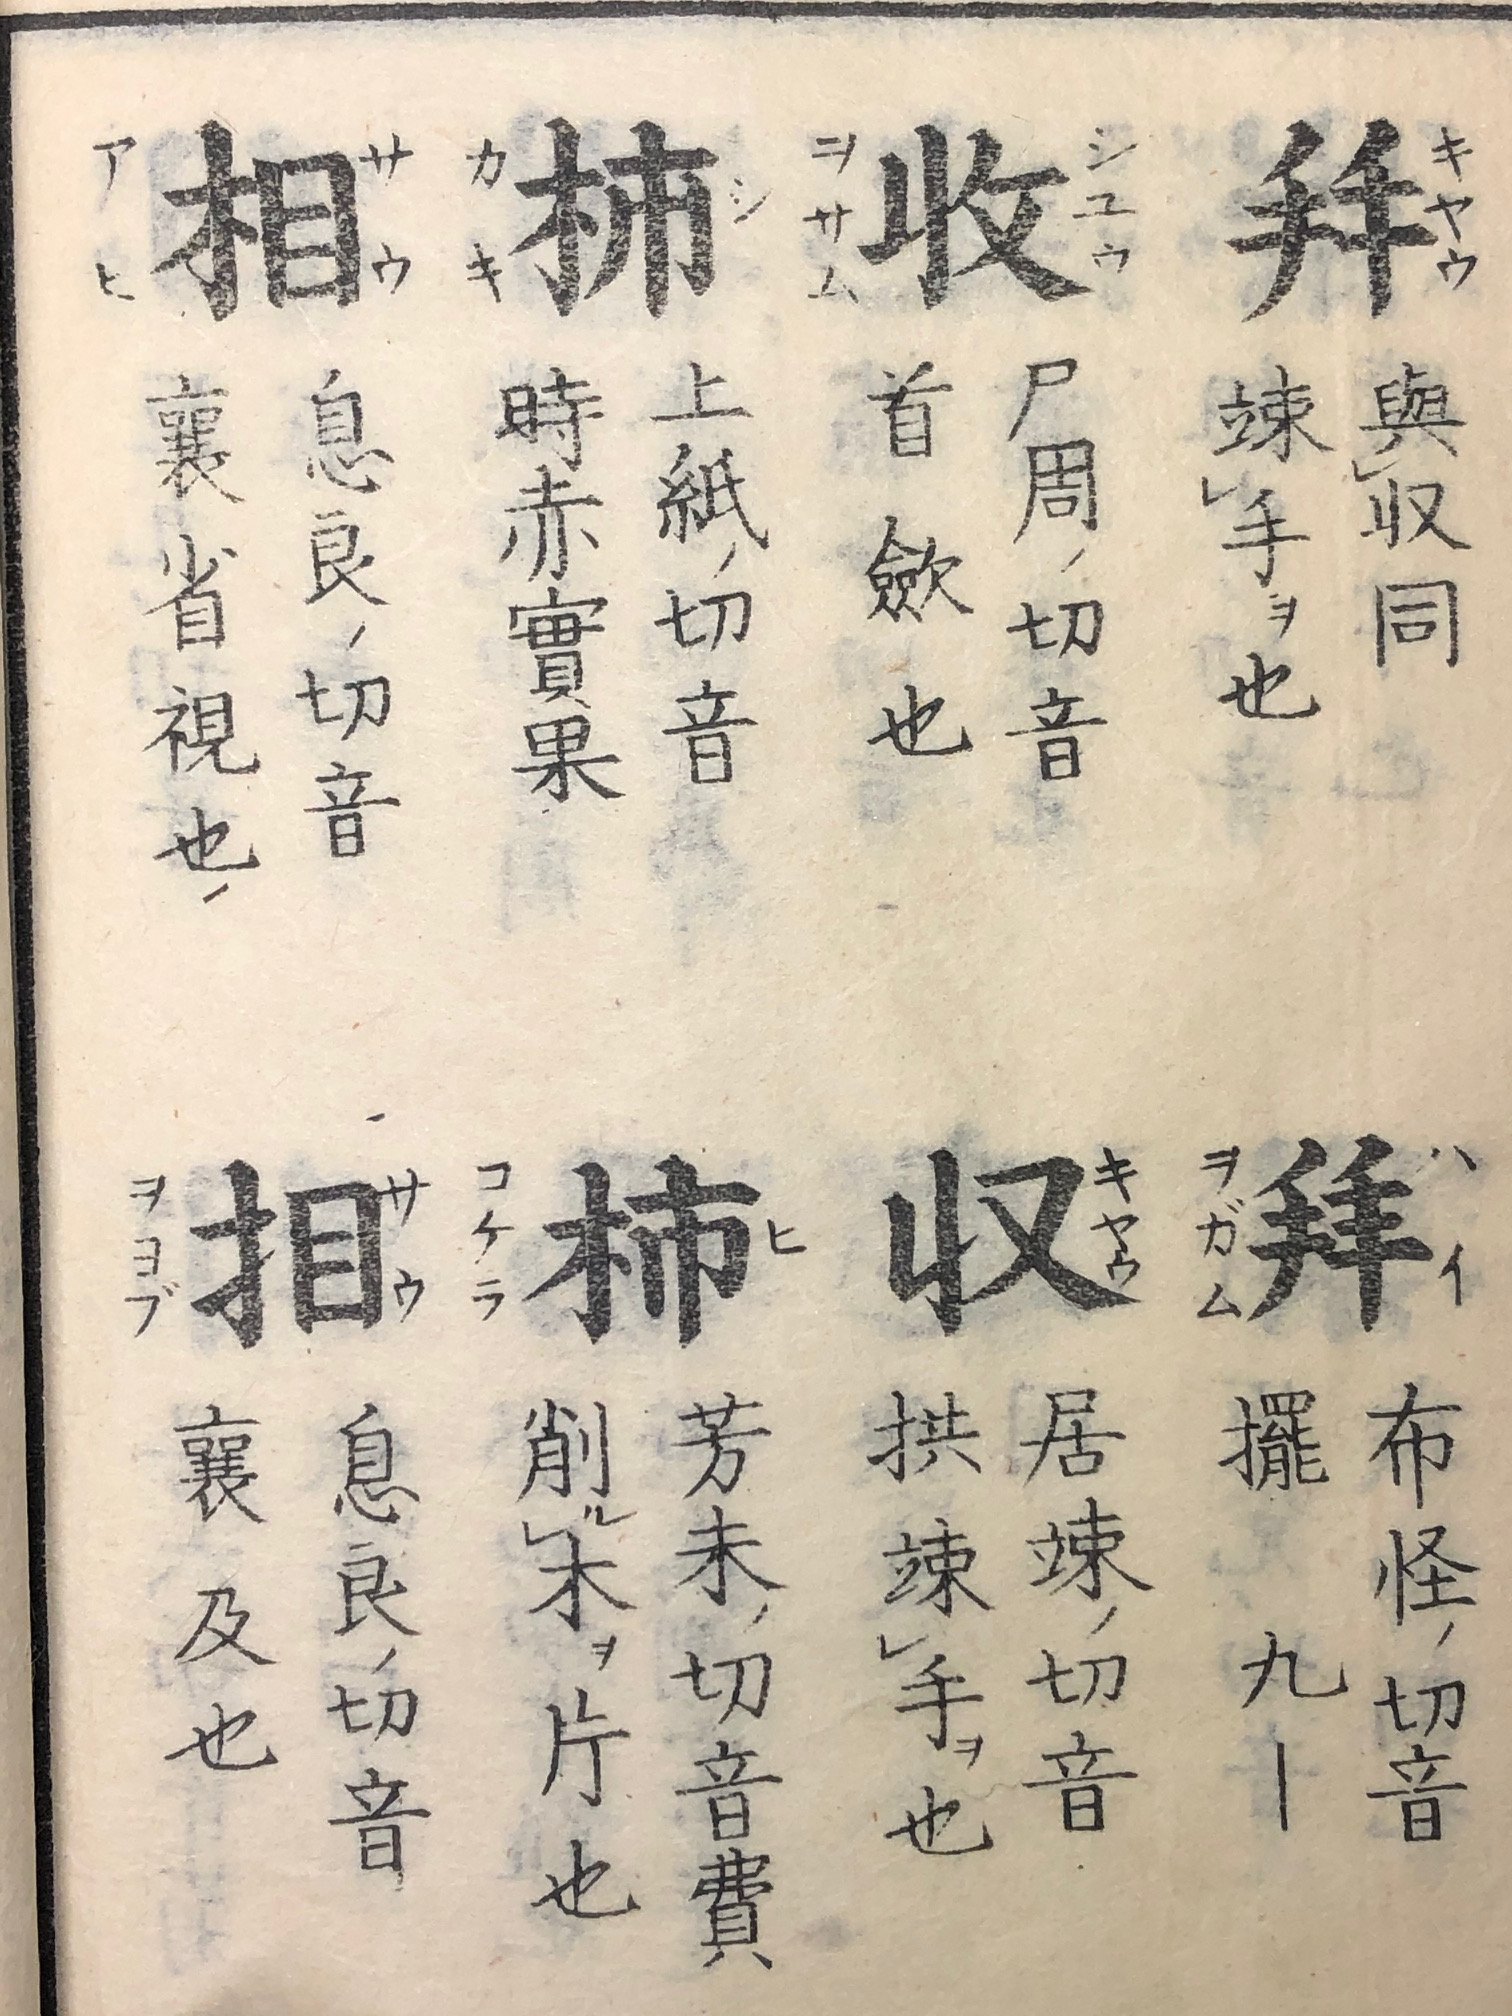 キヤウ
與レ収同
竦レ手ヲ也
シユウ
收
ヲサム
尸周ノ切音
首斂也
シ
柿
カキ
上紙ノ切音
時赤實果
サウ
相
アヒ
息良ノ切音
襄省視也
ハイ
拜
ヲガム
布怪ノ切音
擺 九｜
キヤウ
収
居竦ノ切音
拱竦レ手ヲ也
ヒ
杮
コケラ
芳未ノ切音費
削ルレ木ヲ片也
サウ
ヲヨブ
息良ノ切音
襄及也